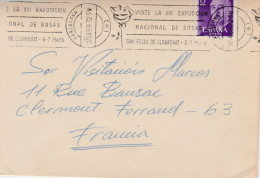 E LA XVI EXPOSICION
NAL DE ROSAS
DE LLOBREGAT - 6-7 MAYO
VISITE LA XVI EXPOSICION
NACIONAL DE ROSAS
SAN FELIU DE LLOBREGAT - 6-7 MAYO
ESPAÑA
Sor Visitación Marcos
11 Rue Bansac
Clermont Ferrand - 63
Francia